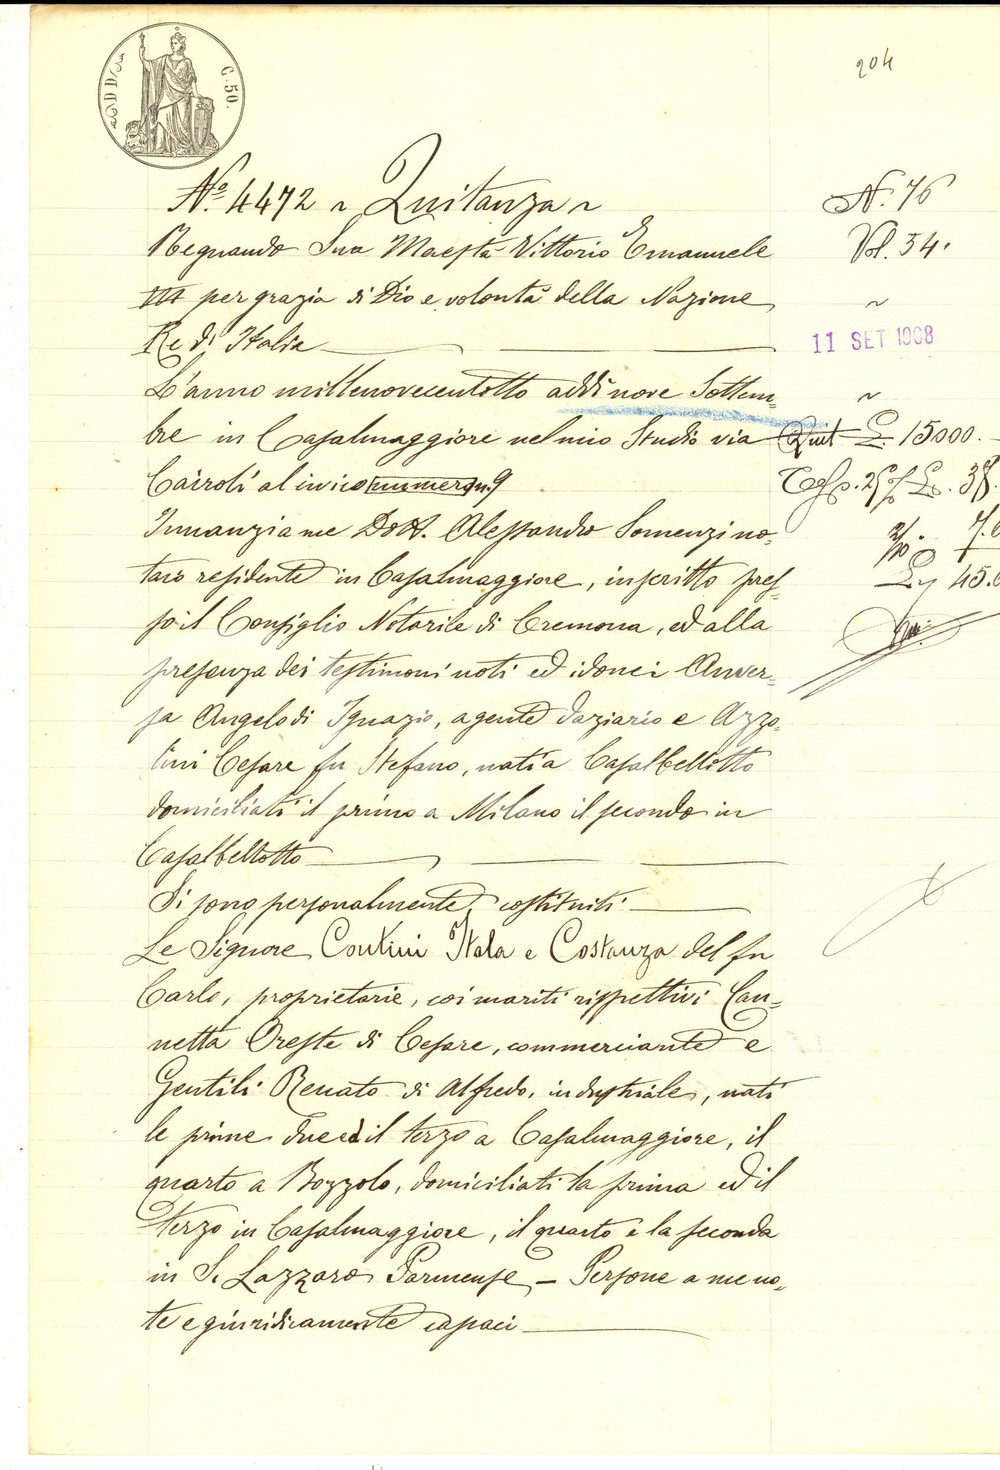 C. 50.
204
Nº. 4472 ~ Quitanza ~
N. 76
Regnando Sua Maestà Vittorio Emanuele
Vol. 34.
III per grazia di Dio e volontà della Nazione
~
Re d'Italia
11 SET 1908
L'anno millenovecentotto addì nove Settem=
~
bre in Casalmaggiore nel mio Studio via
Quit £. 15000.-
Cairoli al civico numero n. 9
Innanzi a me Dott. Alessandro Somenzi no=
taio residente in Casalmaggiore, inscritto pres=
45.
so il Consiglio Notarile di Cremona, ed alla
presenza dei testimoni noti ed idonei Anver=
sa Angelo di Ignazio, agente daziario e Azzo=
lini Cesare fu Stefano, nati a Casalbellotto
domiciliati il primo a Milano il secondo in
Casalbellotto
Si sono personalmente costituiti
Le Signore Contini Itala e Costanza del fu
Carlo, proprietarie, coi mariti rispettivi Can=
netta Oreste di Cesare, commerciante e
Gentili Renato di Alfredo, industriale, nati
le prime due ed il terzo a Casalmaggiore, il
quarto a Bozzolo, domiciliati la prima ed il
terzo in Casalmaggiore, il quarto e la seconda
in S. Lazzaro Parmense, — Persone a me no=
te e giuridicamente capaci